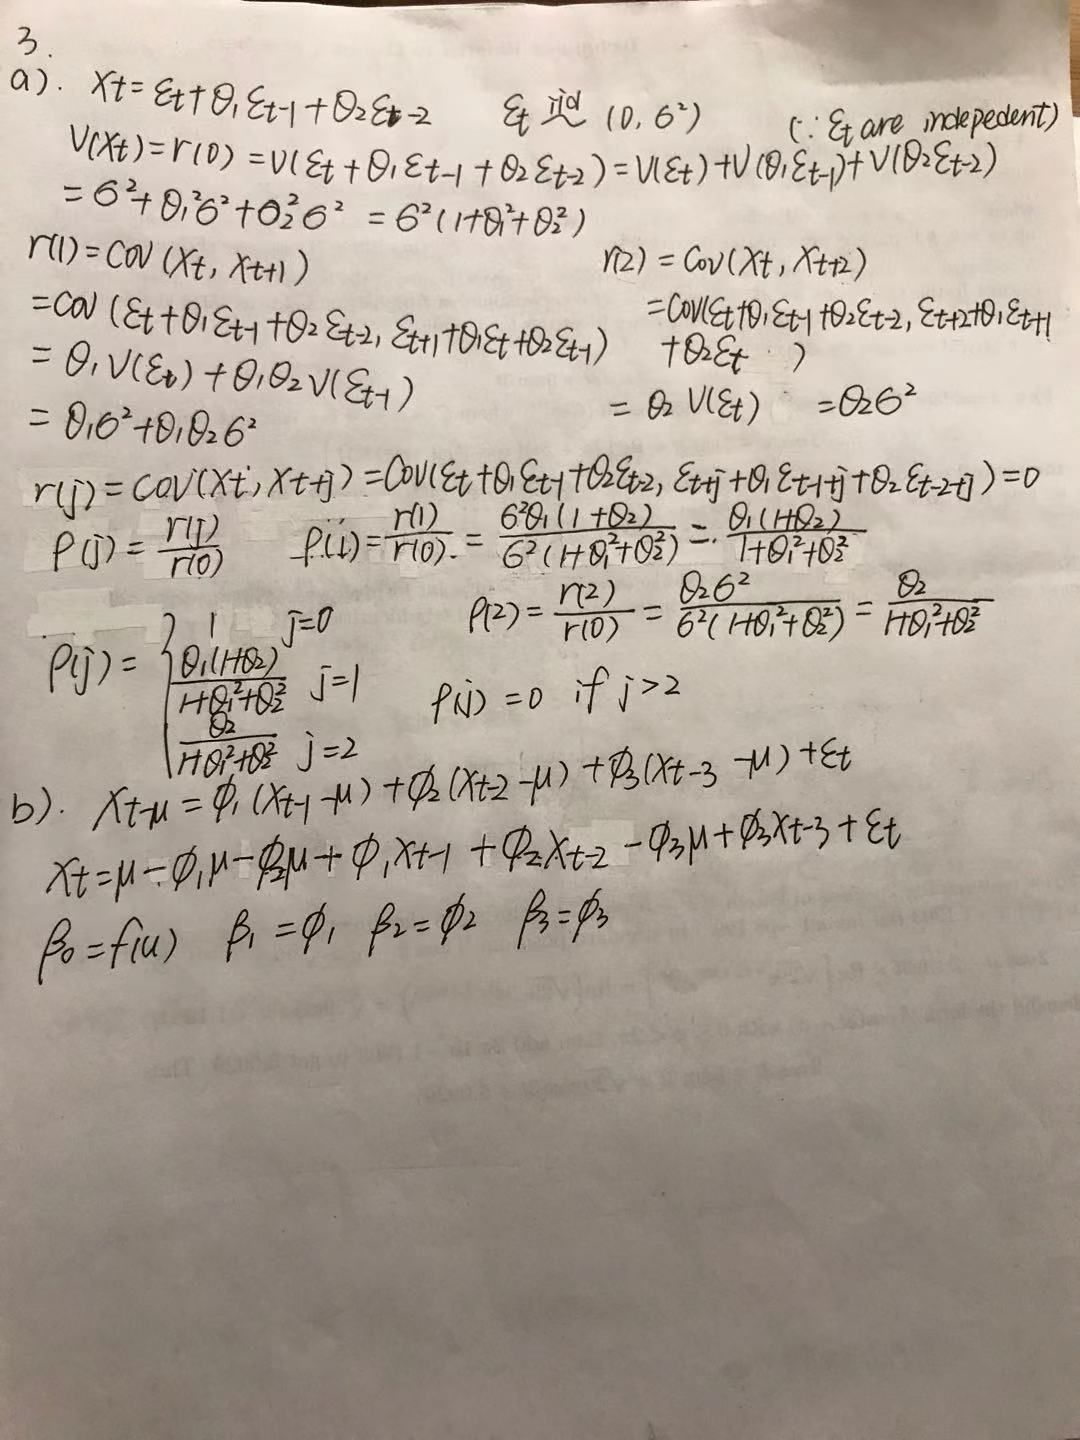 3.
a). Xt = εt + θ1 εt-1 + θ2 εt-2 εt iid (0, 6²) (∵ εt are indepedent)
V(Xt) = r(0) = V(εt + θ1 εt-1 + θ2 εt-2) = V(εt) + V(θ1 εt-1) + V(θ2 εt-2)
= 6² + θ1²6² + θ2²6² = 6²(1+θ1²+θ2²)
r(1) = COV (Xt, Xt+1)
= COV (εt + θ1 εt-1 + θ2 εt-2, εt+1 + θ1 εt + θ2 εt-1)
= θ1 V(εt) + θ1θ2 V(εt-1)
= θ1 6² + θ1θ2 6²
r(2) = Cov(Xt, Xt+2)
= Cov(εt + θ1 εt-1 + θ2 εt-2, εt+2 + θ1 εt+1
+ θ2 εt )
= θ2 V(εt) = θ2 6²
r(j) = COV(Xt, Xt+j) = COV(εt + θ1 εt-1 + θ2 εt-2, εt+j + θ1 εt-1+j + θ2 εt-2+j) = 0
ρ(j) = r(j)/r(0) ρ(i) = r(1)/r(0). = 6²θ1(1+θ2)/6²(1+θ1²+θ2²) = θ1(1+θ2)/1+θ1²+θ2²
ρ(2) = r(2)/r(0) = θ2 6²/6²(1+θ1²+θ2²) = θ2/1+θ1²+θ2²
ρ(j) = { 1 j=0
θ1(1+θ2)/1+θ1²+θ2² j=1
θ2/1+θ1²+θ2² j=2
ρ(j) = 0 if j>2
b). Xt-μ = ϕ1 (Xt-1 - μ) + ϕ2 (Xt-2 - μ) + ϕ3 (Xt-3 - μ) + εt
Xt = μ - ϕ1 μ - ϕ2 μ + ϕ1 Xt-1 + ϕ2 Xt-2 - ϕ3 μ + ϕ3 Xt-3 + εt
β0 = f(u) β1 = ϕ1 β2 = ϕ2 β3 = ϕ3